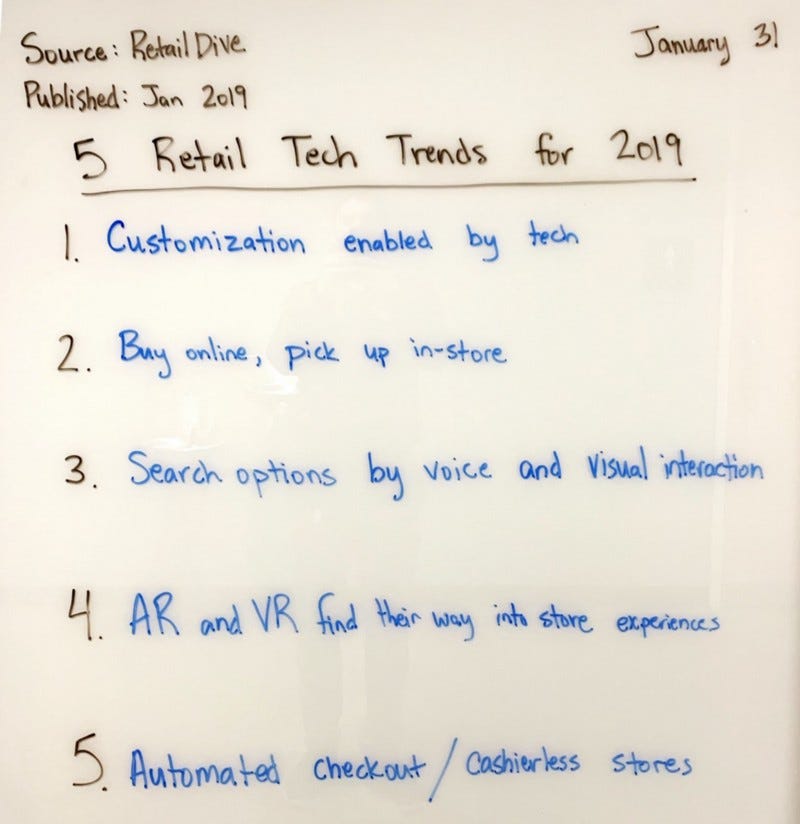 Source: Retail Dive
January 31
Published: Jan 2019
5 Retail Tech Trends for 2019
1. Customization enabled by tech
2. Buy online, pick up in-store
3. Search options by voice and visual interaction
4. AR and VR find their way into store experiences
5. Automated checkout / Cashierless stores